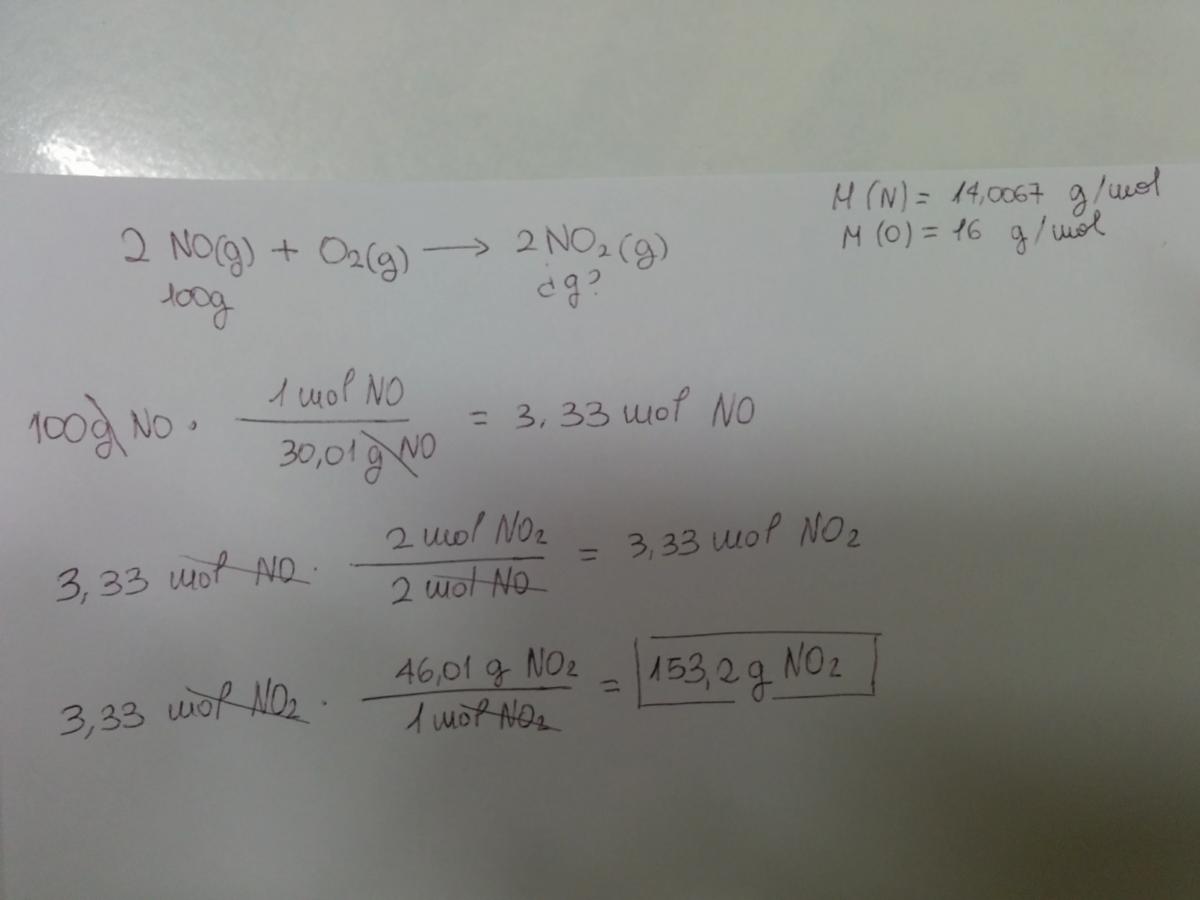 M(N) = 14,0067 g/mol
M(O) = 16 g/mol
2 NO(g) + O₂(g) → 2NO₂(g)
100g ¿g?
100g NO · 1 mol NO / 30,01 g NO = 3,33 mol NO
3,33 mol NO · 2 mol NO₂ / 2 mol NO = 3,33 mol NO₂
3,33 mol NO₂ · 46,01 g NO₂ / 1 mol NO₂ = 153,2 g NO₂